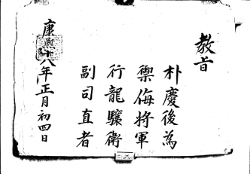 教旨
朴慶後為
禦侮將軍
行龍驤衛
副司直者
康熙十八年正月初四日